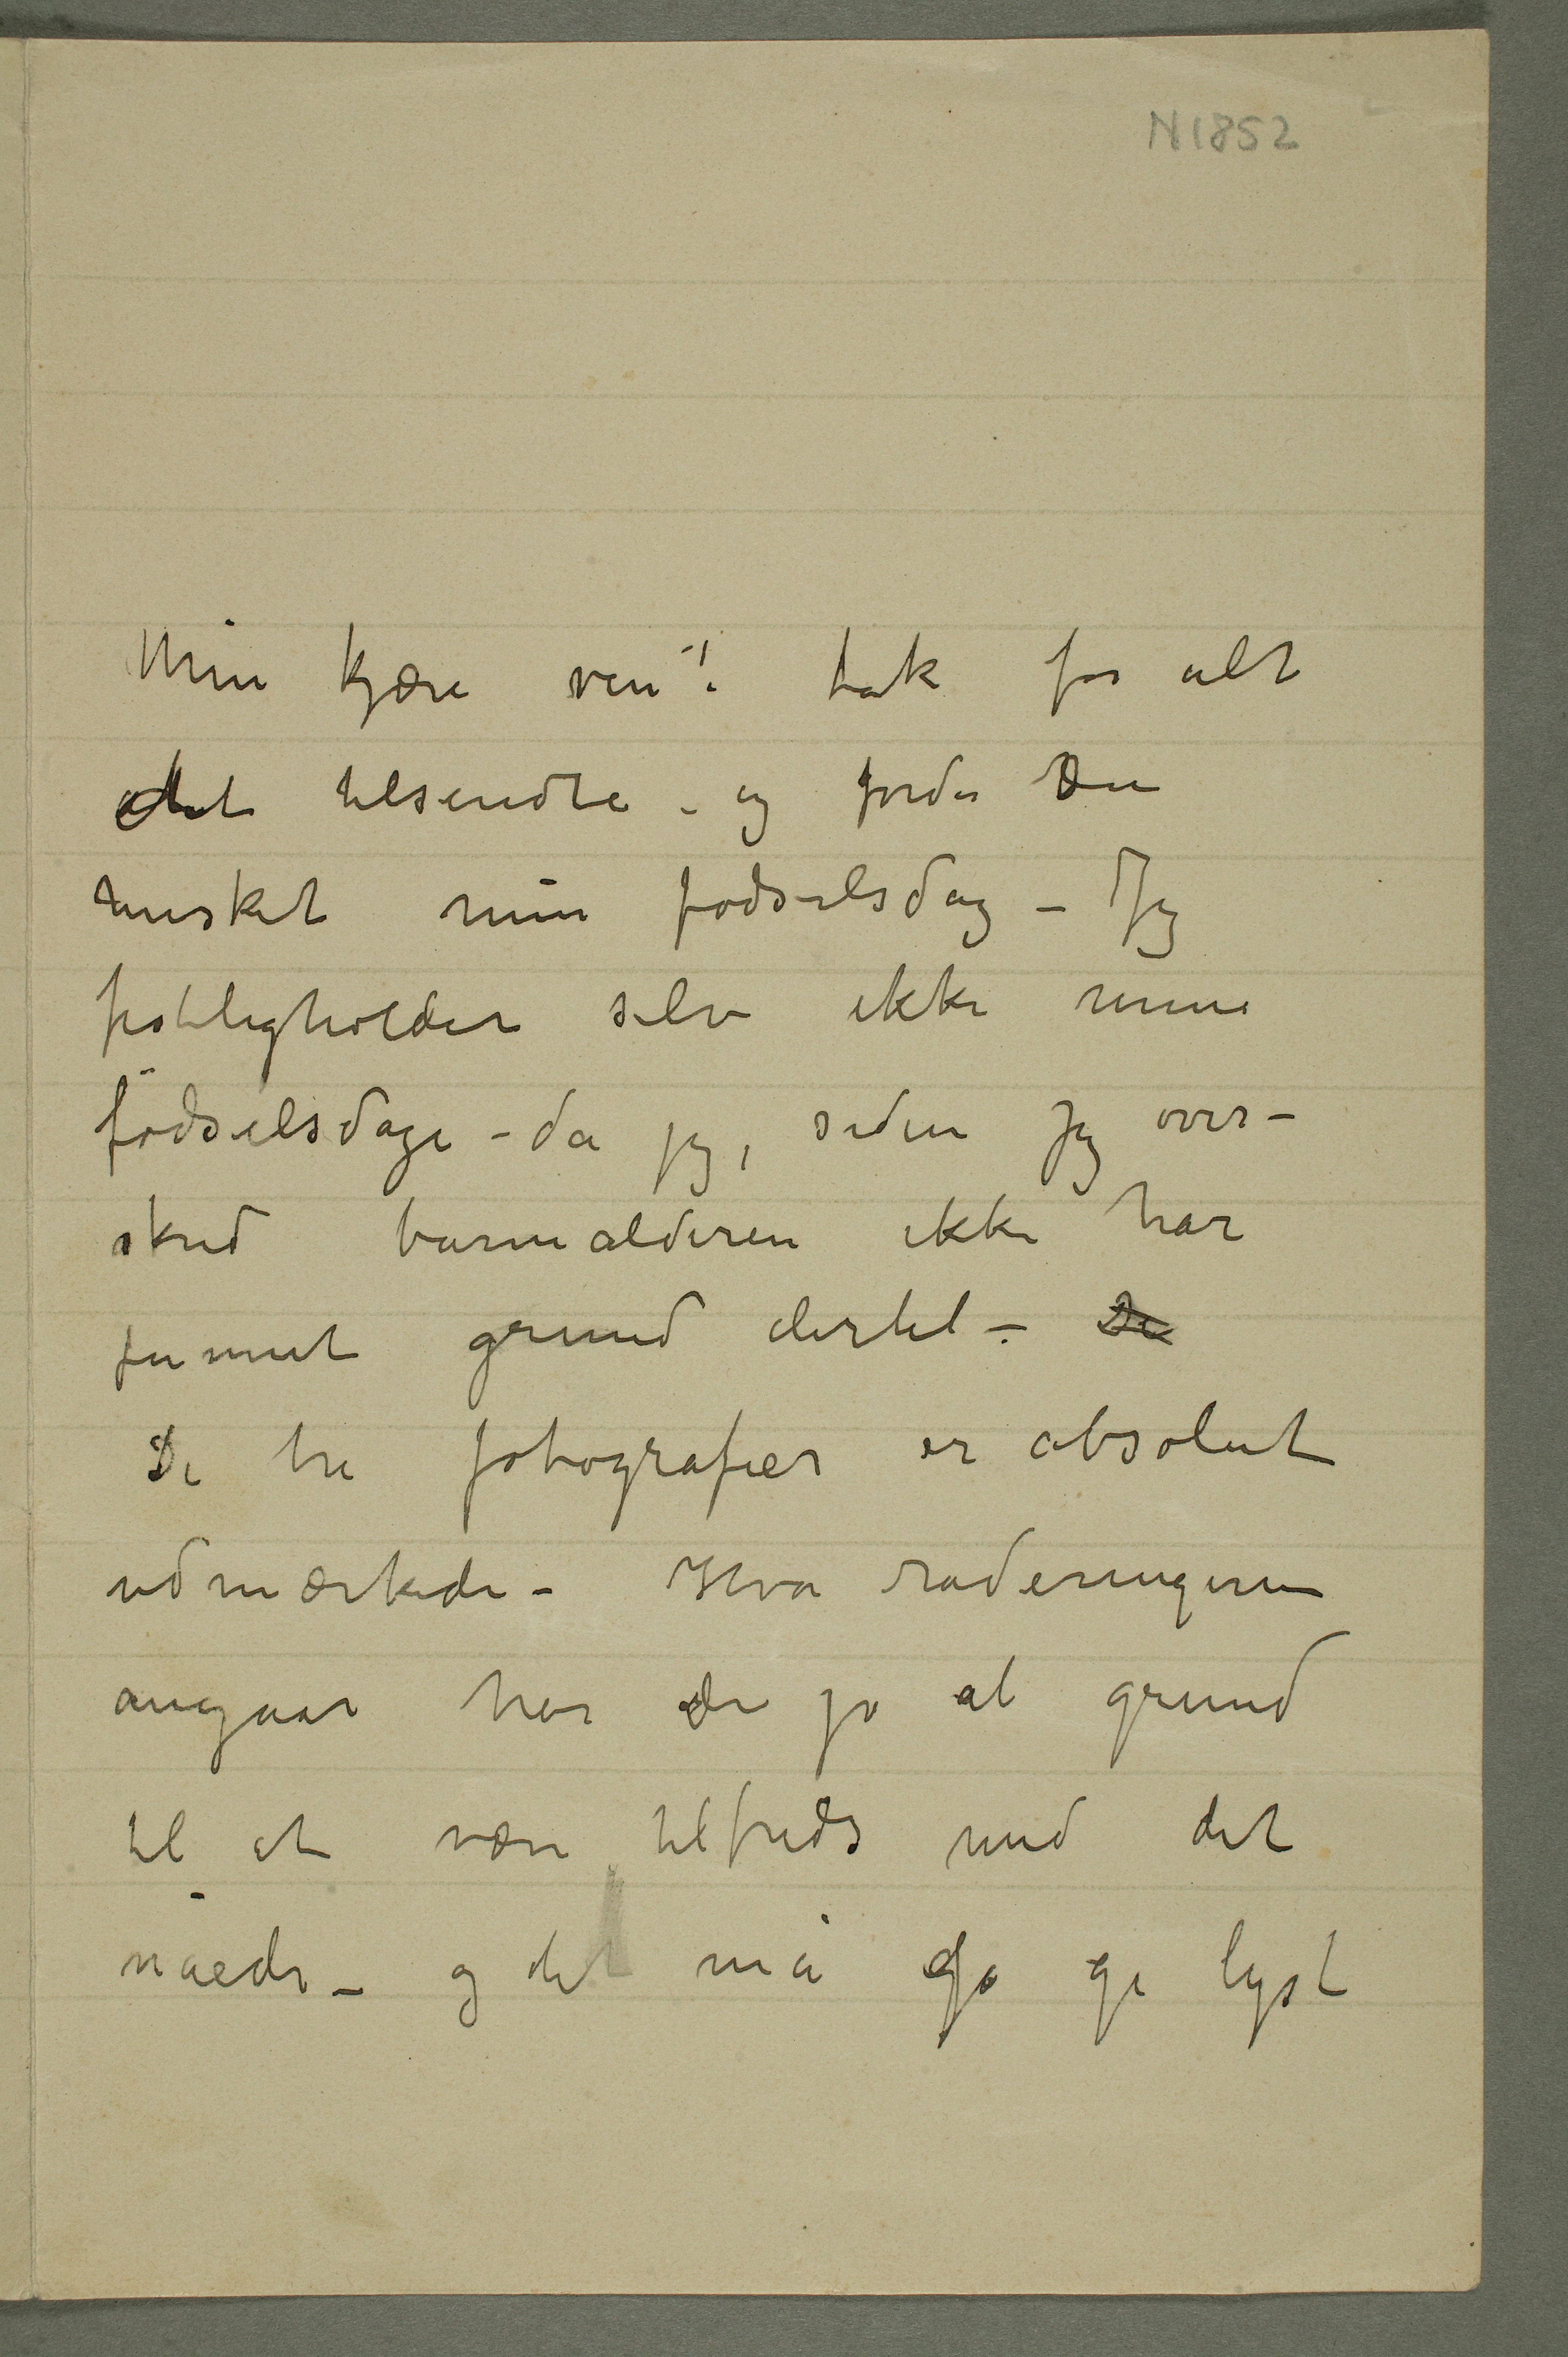 N1852
Min kjære ven! tak for alt
det tilsendte – og fordi Du
husket min fødselsdag – Jeg
festligholder selv ikke mine
fødselsdage – da jeg, siden jeg over-
skred barnealderen ikke har
funnet grund dertil – De
De tre fotografier er absolut
udmærkede – Hva raderingerne
angaar har du jo al grund
til at være tilfreds med det
nåede – og det må jo gi lyst